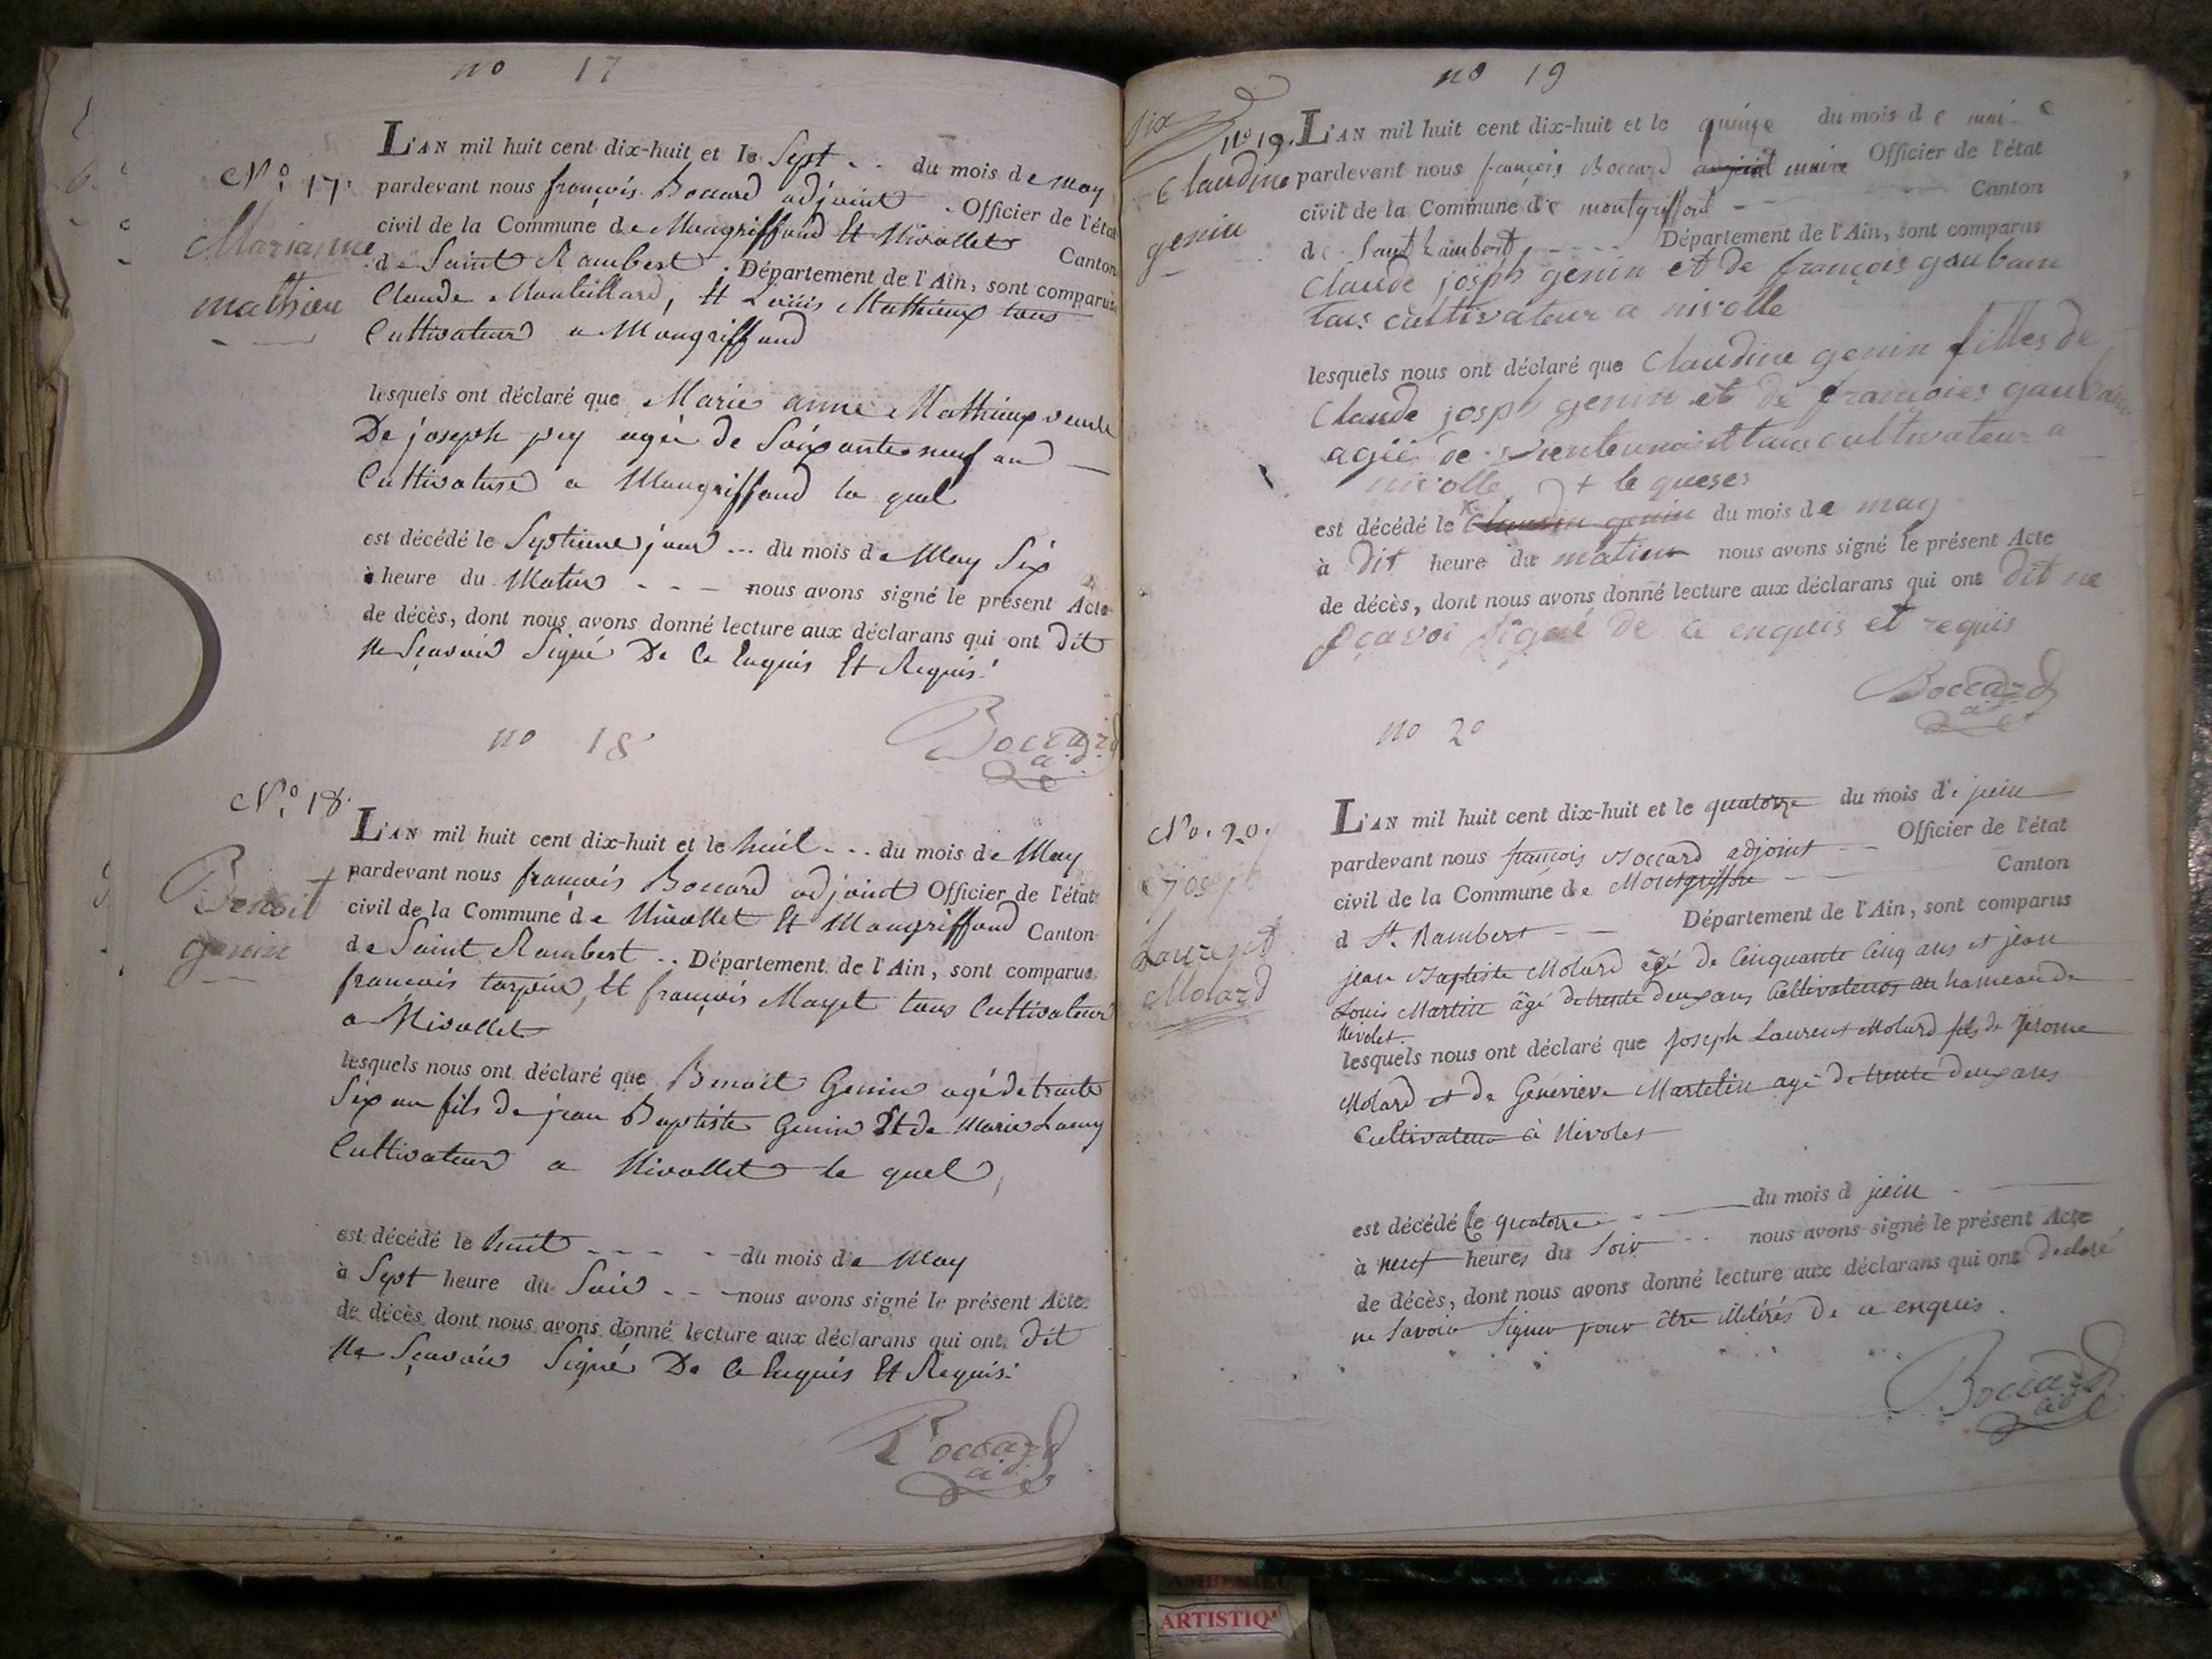 no 17
N.o 17.
Marianne
mathieu
L'AN mil huit cent dix-huit et le Sept du mois de May
pardevant nous françois Boccard adjoint Officier de l'état
civil de la Commune de Mongriffond Et Nivollet Canton
de Saint Rambert Département de l'Ain, sont comparus
Claude Montillard, Et Louis Mathieux tous
Cultivateur a Mongriffond
lesquels ont déclaré que Marie anne Mathieux veuve
De joseph pey agée de Soixante neuf an
Cultivatuse a Mongriffond la quel
est décédé le Septieme jour du mois de May Six
à heure du Matin nous avons signé le présent Acte
de décès, dont nous avons donné lecture aux déclarans qui ont dit
ne Sçavoir Signé De Ce Enquis Et Requis
Boccard
a.d.
no 18
N.o 18.
Benoit
genin
L'AN mil huit cent dix-huit et le huit du mois de May
pardevant nous françois Boccard adjoint Officier de l'état
civil de la Commune de Nivollet Et Mongriffond Canton
de Saint Rambert Département de l'Ain, sont comparus
francois tarpin, Et françois Mayet tous Cultivateur
a Nivollet
lesquels nous ont déclaré que Benoit Genin agé de trante
Six an fils de jean Baptiste Genin Et de Marie Lamy
Cultivateur a Nivollet le quel
est décédé le huit du mois de May
à Sept heure du Soir nous avons signé le présent Acte
de décès dont nous avons donné lecture aux déclarans qui ont dit
Ne Sçavoir Signé De Ce Enquis Et Requis
Boccard
a.d
no 19
six
No 19.
Claudine
genin
L'AN mil huit cent dix-huit et le quinze du mois de mai
pardevant nous françois Boccard adjoint maire Officier de l'état
civil de la Commune de montgriffond Canton
de Saint Rambert Département de l'Ain, sont comparus
Claude josph genin et de françois gaubain
tous cultivateur a nivolle
lesquels nous ont déclaré que Claudine genin filles de
Claude josph genin et de francoies gaubain
agée de cultivateur a
nivolle + le queses
est décédé le Claudin genin du mois de may
à dit heure du matin nous avons signé le présent Acte
de décès, dont nous avons donné lecture aux déclarans qui ont dit ne
sçavoi signé de ce enquis et requis
Boccard
no 20
No. 20.
joseph
Laurent
Molard
L'AN mil huit cent dix-huit et le quatorze du mois de juin
pardevant nous françois Boccard adjoint Officier de l'état
civil de la Commune de Montgriffon Canton
d St. Rambert Département de l'Ain, sont comparus
jean Baptiste Molard âgé de Cinquante Cinq ans et jean
Louis Martin âgé de trente deux ans Cultivateurs au hameau de
Nivolet.
lesquels nous ont déclaré que Joseph Laurent Molard fils de Jérome
Molard et de Génevieve Martelin agé de trente deux ans
Cultivateur à Nivolet
est décédé le quatorze du mois d juin
à neuf heures du Soir nous avons signé le présent Acte
de décès, dont nous avons donné lecture aux déclarans qui ont declaré
ne Savoir Signer pour être illitérés de ce enquis.
Boccard
ad
AMBERIEU
ARTISTIQ